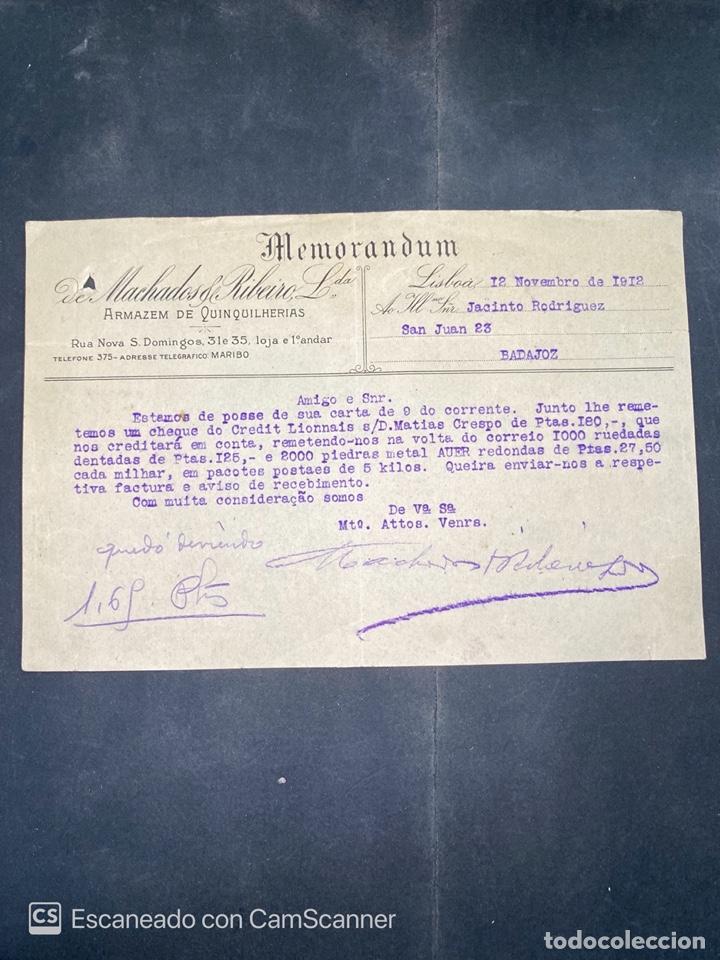 Memorandum
de Machados & Ribeiro, Lda
ARMAZEM DE QUINQUILHERIAS
Rua Nova S. Domingos, 31 e 35, loja e 1º andar
TELEFONE 375 - ADRESSE TELEGRAFICO: MARIBO
Lisboa 12 Novembro de 1912
Ao Illmo Snr. Jacinto Rodriguez
San Juan 23
BADAJOZ
Amigo e Snr.
Estamos de posse de sua carta de 9 do corrente. Junto lhe reme-
temos um cheque do Credit Lionnais s/D.Matias Crespo de Ptas.I80,-, que
nos creditará em conta, remetendo-nos na volta do correio I000 ruedadas
dentadas de Ptas.I25,- e 2000 piedras metal AUER redondas de Ptas.27,50
cada milhar, em pacotes postaes de 5 kilos. Queira enviar-nos a respe-
tiva factura e aviso de recebimento.
Com muita consideração somos
De Vª Sª
Mtº. Attos. Venrs.
quedó deviendo
1,65 Pts
Machados & Ribeiro Lda
CS Escaneado con CamScanner
todocoleccion